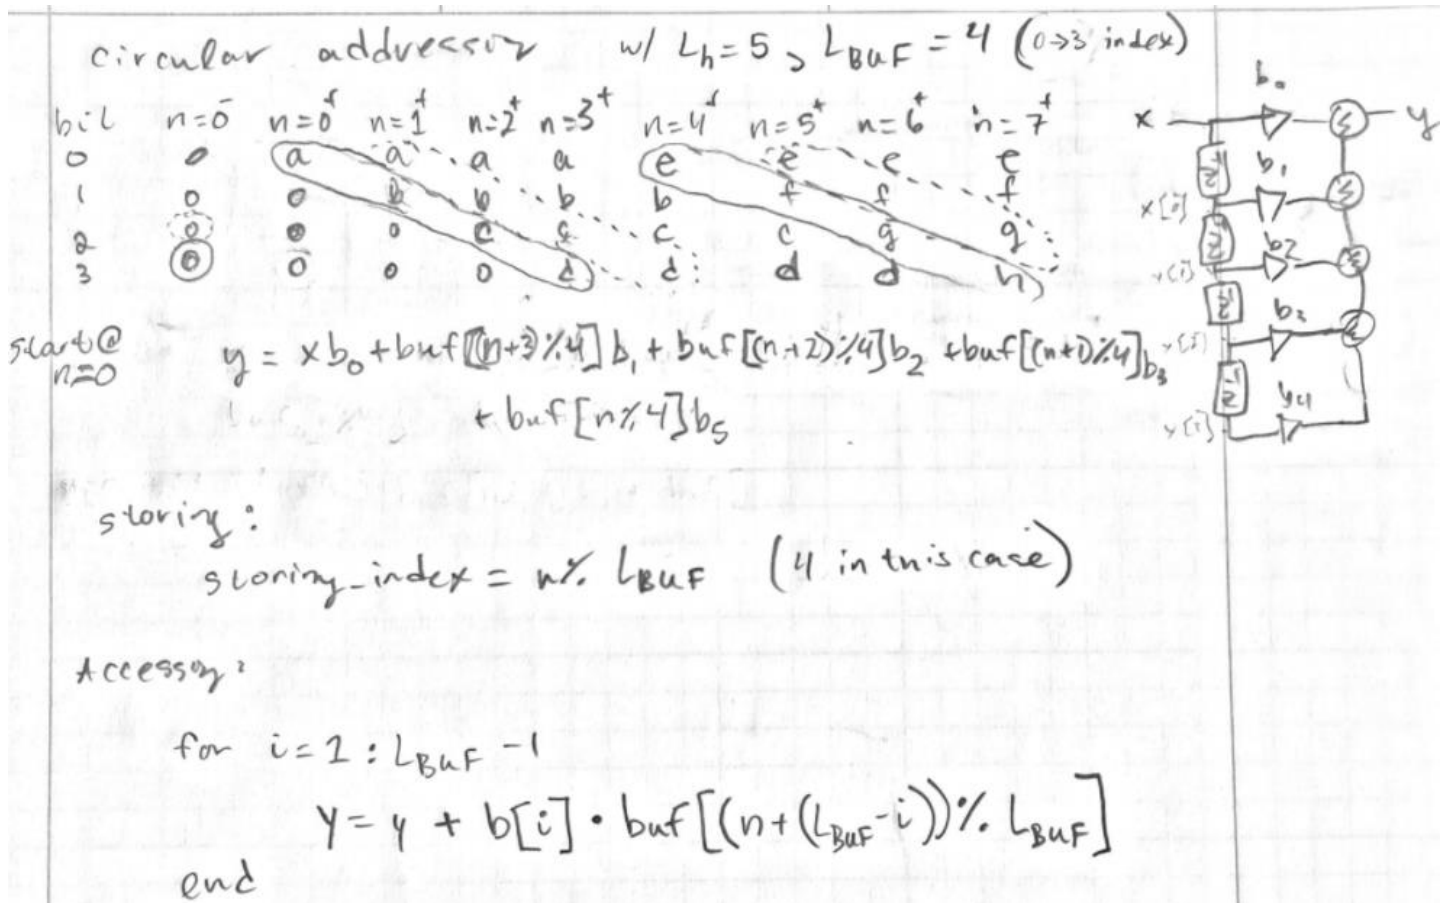 circular addressor w/ L_h=5, L_BUF=4 (0→3 index)
n=0⁻ n=0⁺ n=1⁺ n=2⁺ n=3⁺ n=4⁺ n=5⁺ n=6⁺ n=7⁺
0 0 a a a a e e e e
1 0 0 b b b b f f f
2 0 0 0 c c c c g g
3 0 0 0 0 d d d d h
start@ n=0
y = xb₀ + buf[(n+3)%4]b₁ + buf[(n+2)%4]b₂ + buf[(n+1)%4]b₃
+ buf[n%4]b₅
storing:
storing_index = n% L_BUF (4 in this case)
Accessing:
for i=1:L_BUF-1
y = y + b[i]·buf[(n+(L_BUF-i))% L_BUF]
end
b₀
x y
b₁
x[i]
b₂
b₃
b₄